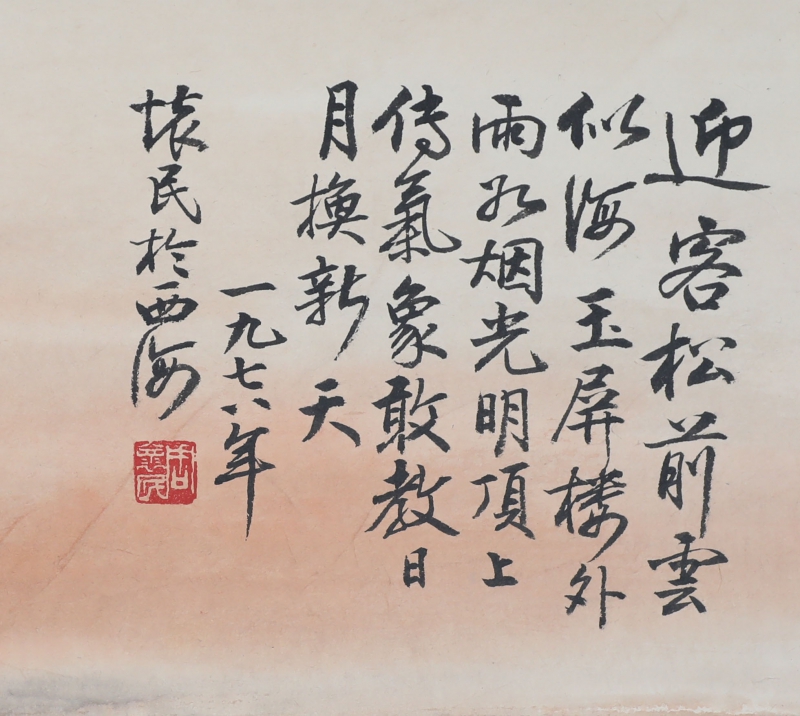 迎客松前雲
似海玉屏楼外
雨如烟光明頂上
傳氣象敢教日
月換新天
一九七八年
懷民於西海
周懷民